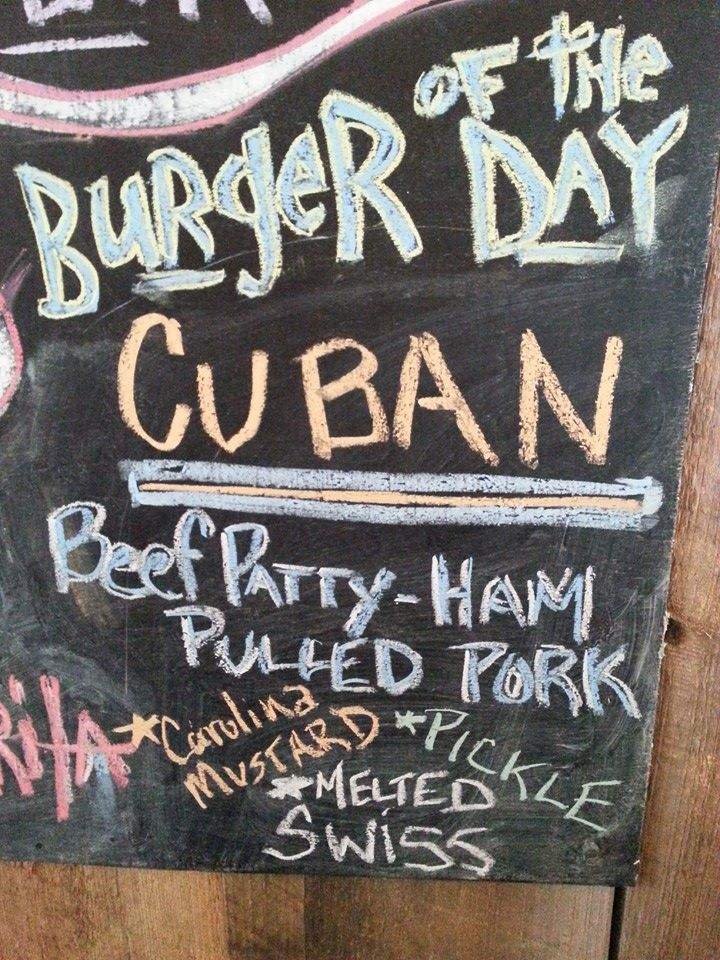 BURGER OF THE
DAY
CUBAN
Beef PATTY-HAM
PULLED PORK
*Carolina
MUSTARD
*PICKLE
*MELTED
SWiSS
RitA